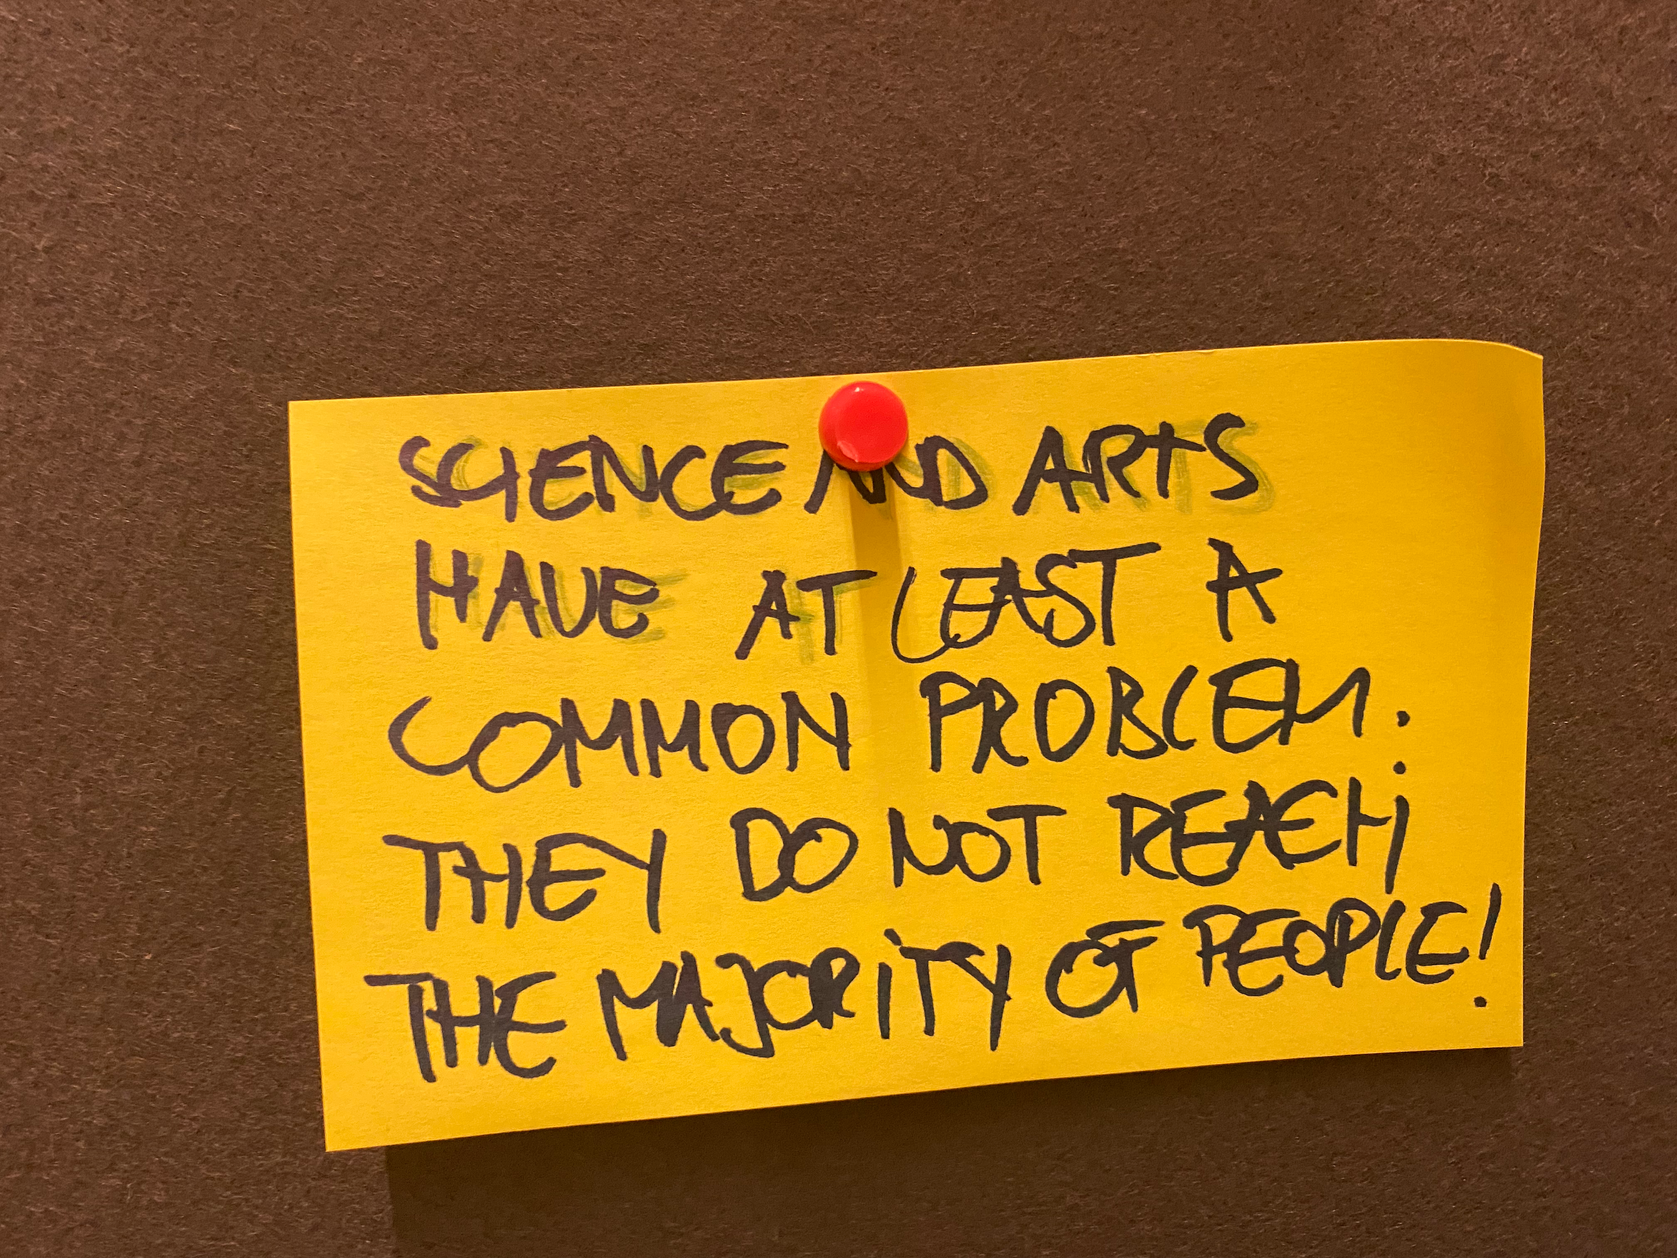 SCIENCE AND ARTS
HAVE AT LEAST A
COMMON PROBLEM.
THEY DO NOT REACH
THE MAJORITY OF PEOPLE!